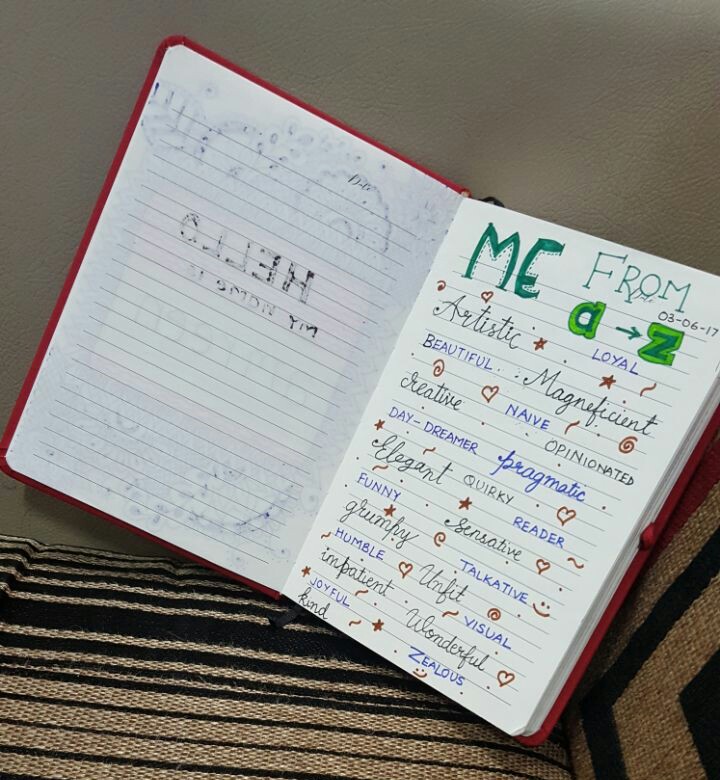 HELLO
my name is
ME FROM
a → z
03-06-17
Artistic
BEAUTIFUL
creative
DAY-DREAMER
Elegant
FUNNY
grumpy
HUMBLE
impatient
JOYFUL
kind
LOYAL
Magneficient
NAIVE
OPINIONATED
pragmatic
QUIRKY
READER
Sensative
TALKATIVE
Unfit
VISUAL
Wonderful
ZEALOUS